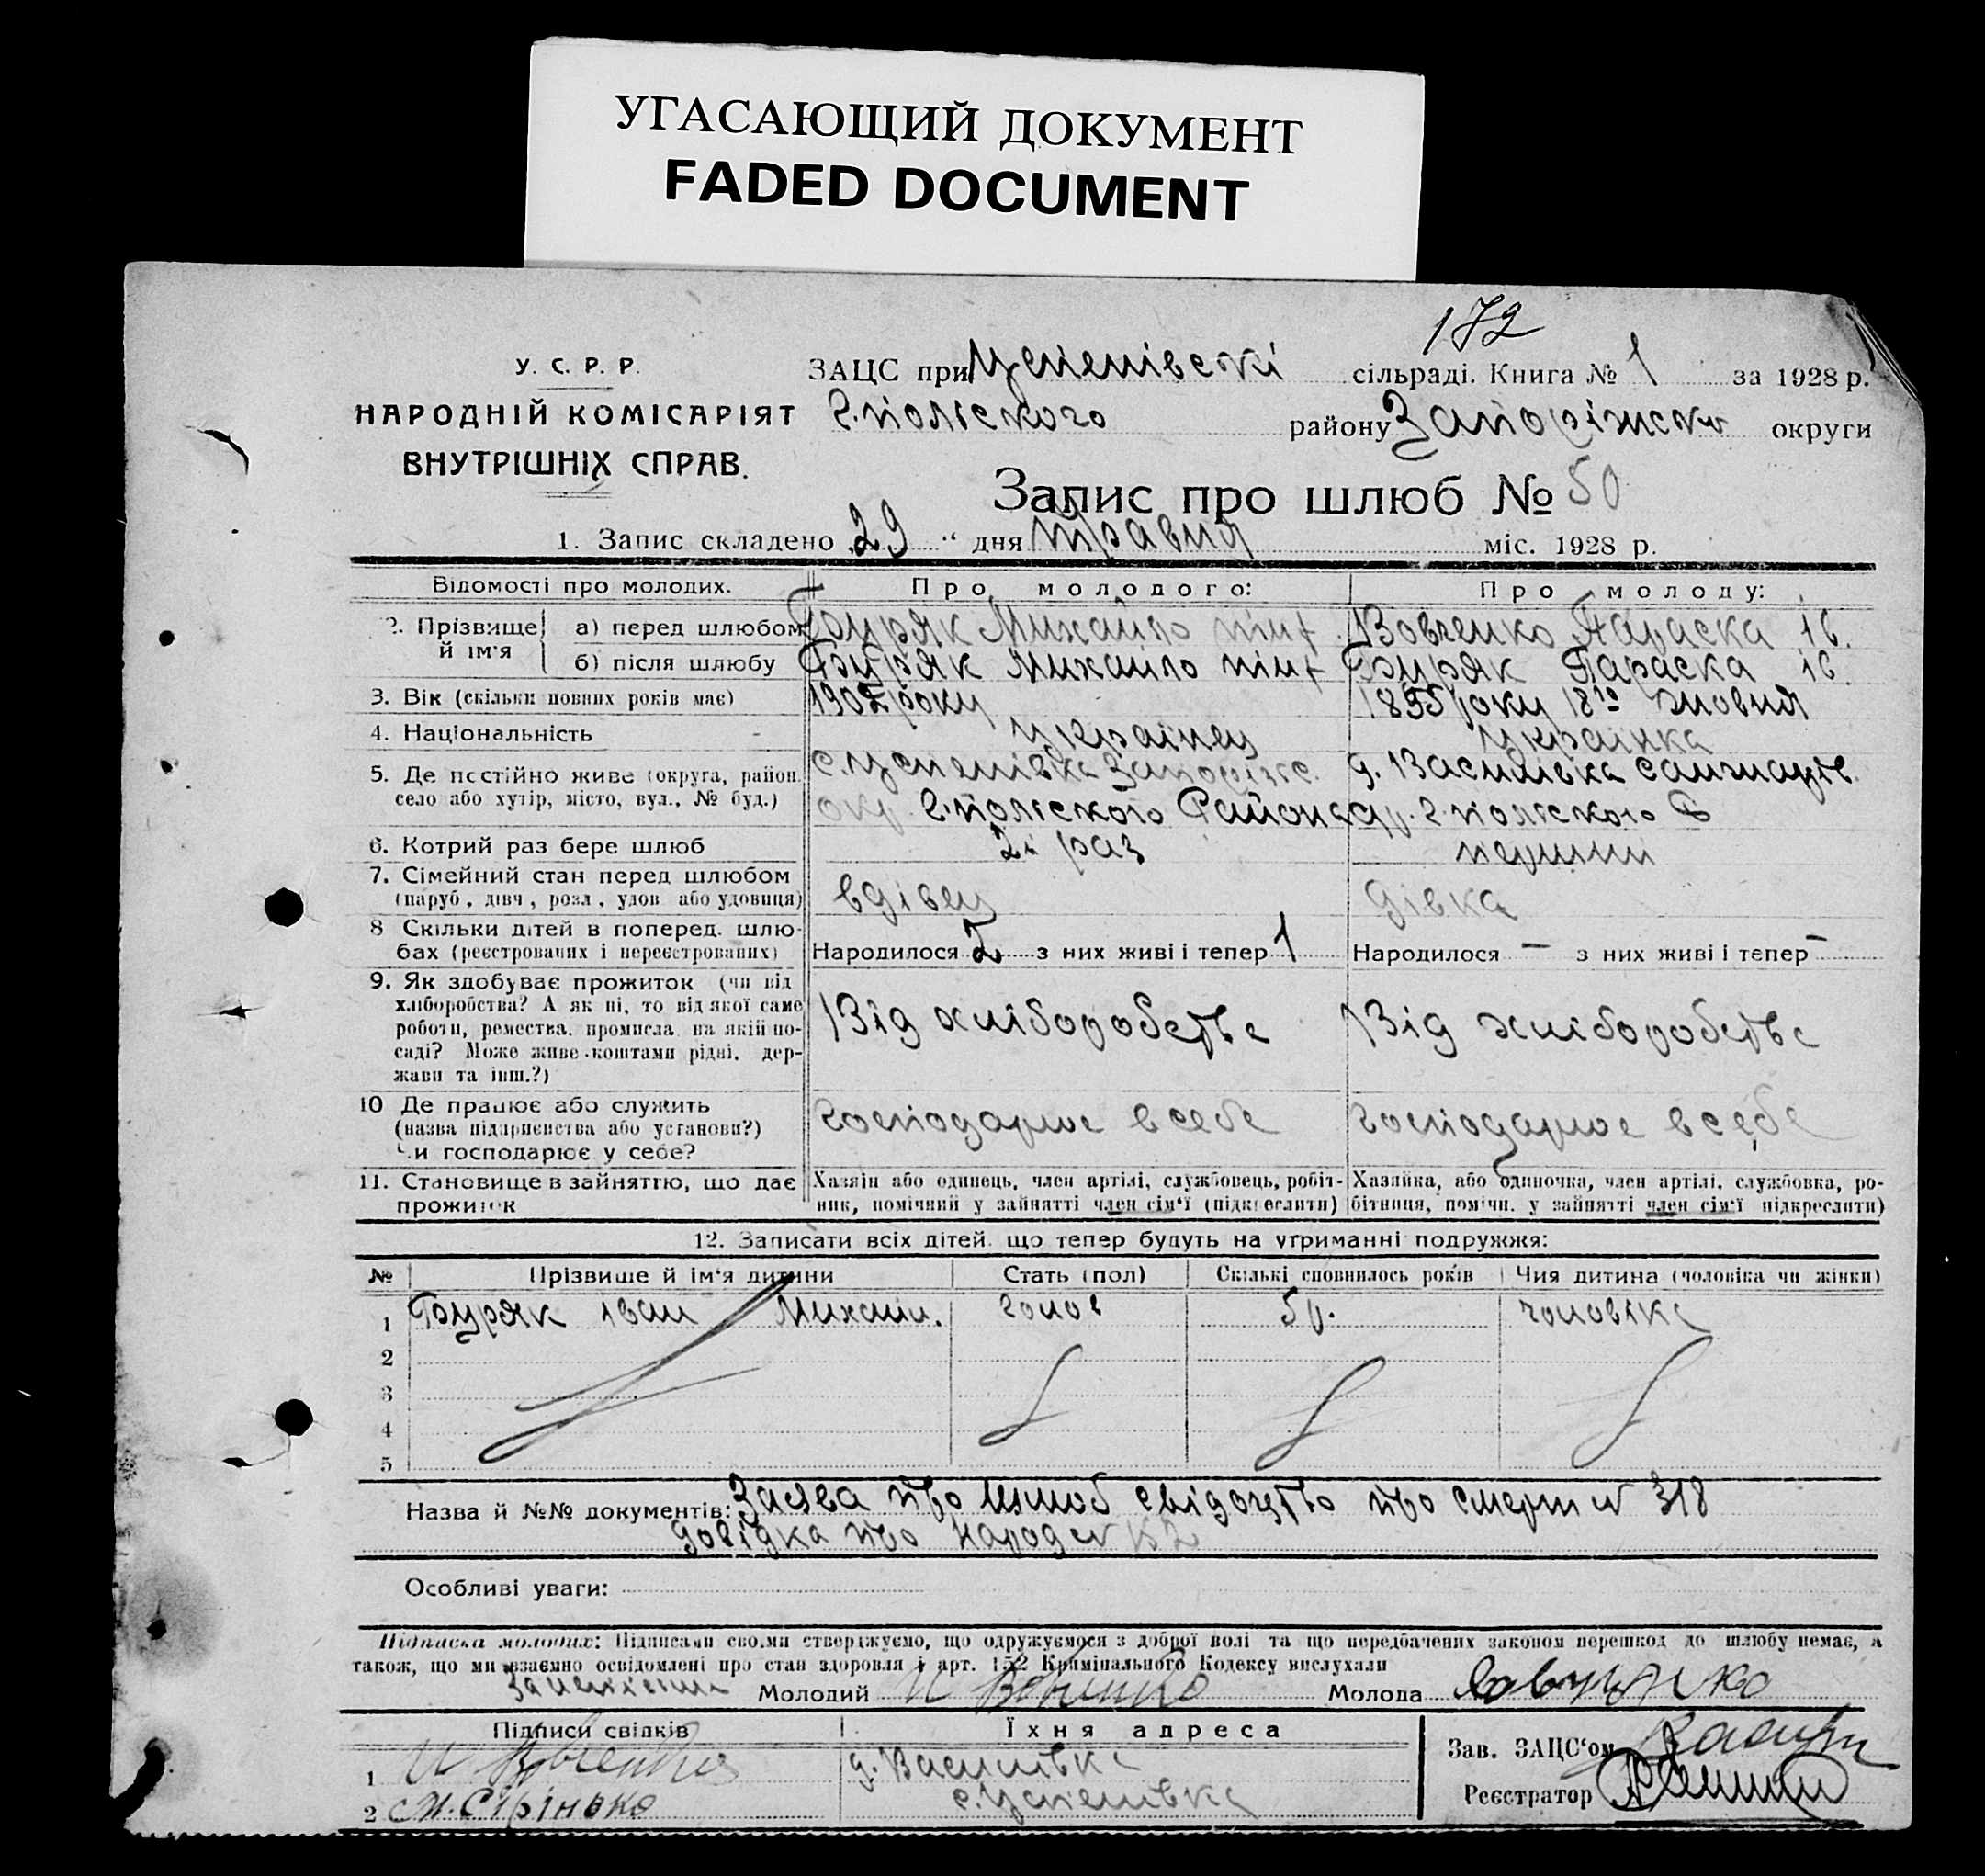 УГАСАЮЩИЙ ДОКУМЕНТ
FADED DOCUMENT
172
У. С. Р. Р.
НАРОДНІЙ КОМІСАРІЯТ
ВНУТРІШНІХ СПРАВ.
ЗАЦС при Успенівскі сільраді. Книга № 1 за 1928 р.
Г.польского району Запоріжско округи
Запис про шлюб № 50
1. Запис складено 29 " дня травня міс. 1928 р.
Відомості про молодих. Про молодого: Про молоду:
2. Прізвище й ім'я
а) перед шлюбом Буряк Михайло Вовченко Параска
б) після шлюбу Буряк Михайло Буряк Параска
3. Вік (скільки повних років має) 1902 року
4. Національність українец українка
5. Де постійно живе (округа, район, село або хутір, місто, вул., № буд.)
с. Успенівка Запоріжс. окр. Г.польского Района
д. Василівка Г.польского
6. Котрий раз бере шлюб 2й раз перший
7. Сімейний стан перед шлюбом (паруб., дівч., розл., удов. або удовиця) вдівец дівка
8 Скільки дітей в поперед. шлюбах (реєстрованих і нереєстрованих)
Народилося 2 з них живі і тепер 1 Народилося — з них живі і тепер —
9. Як здобуває прожиток (чи від
хліборобства? А як ні, то від якої саме
роботи, ремества, промисла, на якій по-
саді? Може живе коштами рідні, дер-
жави та інш.?)
Від хліборобства Від хліборобства
10 Де працює або служить
(назва підприємства або установи?)
Чи господарює у себе?
Господарює в себе Господарює в себе
11. Становище в зайняттю, що дає
прожиток
Хазяін або одинець, член артілі, службовець, робіт-
ник, помічний у зайнятті член сім'ї (підкреслити)
Хазяйка, або одиночка, член артілі, службовка, ро-
бітниця, помічн. у зайнятті член сім'ї підкреслити)
12. Записати всіх дітей, що тепер будуть на утриманні подружжя:
№ Прізвище й ім'я дитини Стать (пол) Скількі сповнилось років Чия дитина (чоловіка чи жінки)
1 Буряк Іван Михайл. чолов 5 р. чоловіка
2
3
4
5
Назва й №№ документів: Заява про шлюб свідоцтво про смерт № 318
довідка про народ №
Особливі уваги:
Підписка молодих: Підписами своїми стверджуємо, що одружуємося з доброї волі та що передбачених законом перешкод до шлюбу немає, а
також, що ми взаємно освідомлені про стан здоровля і арт. 152 Кримінального Кодексу вислухали
Молодий Молода
Підписи свідків Їхня адреса
1 д. Василівка
2 с. Успенівка
Зав. ЗАЦС'ом
Реєстратор